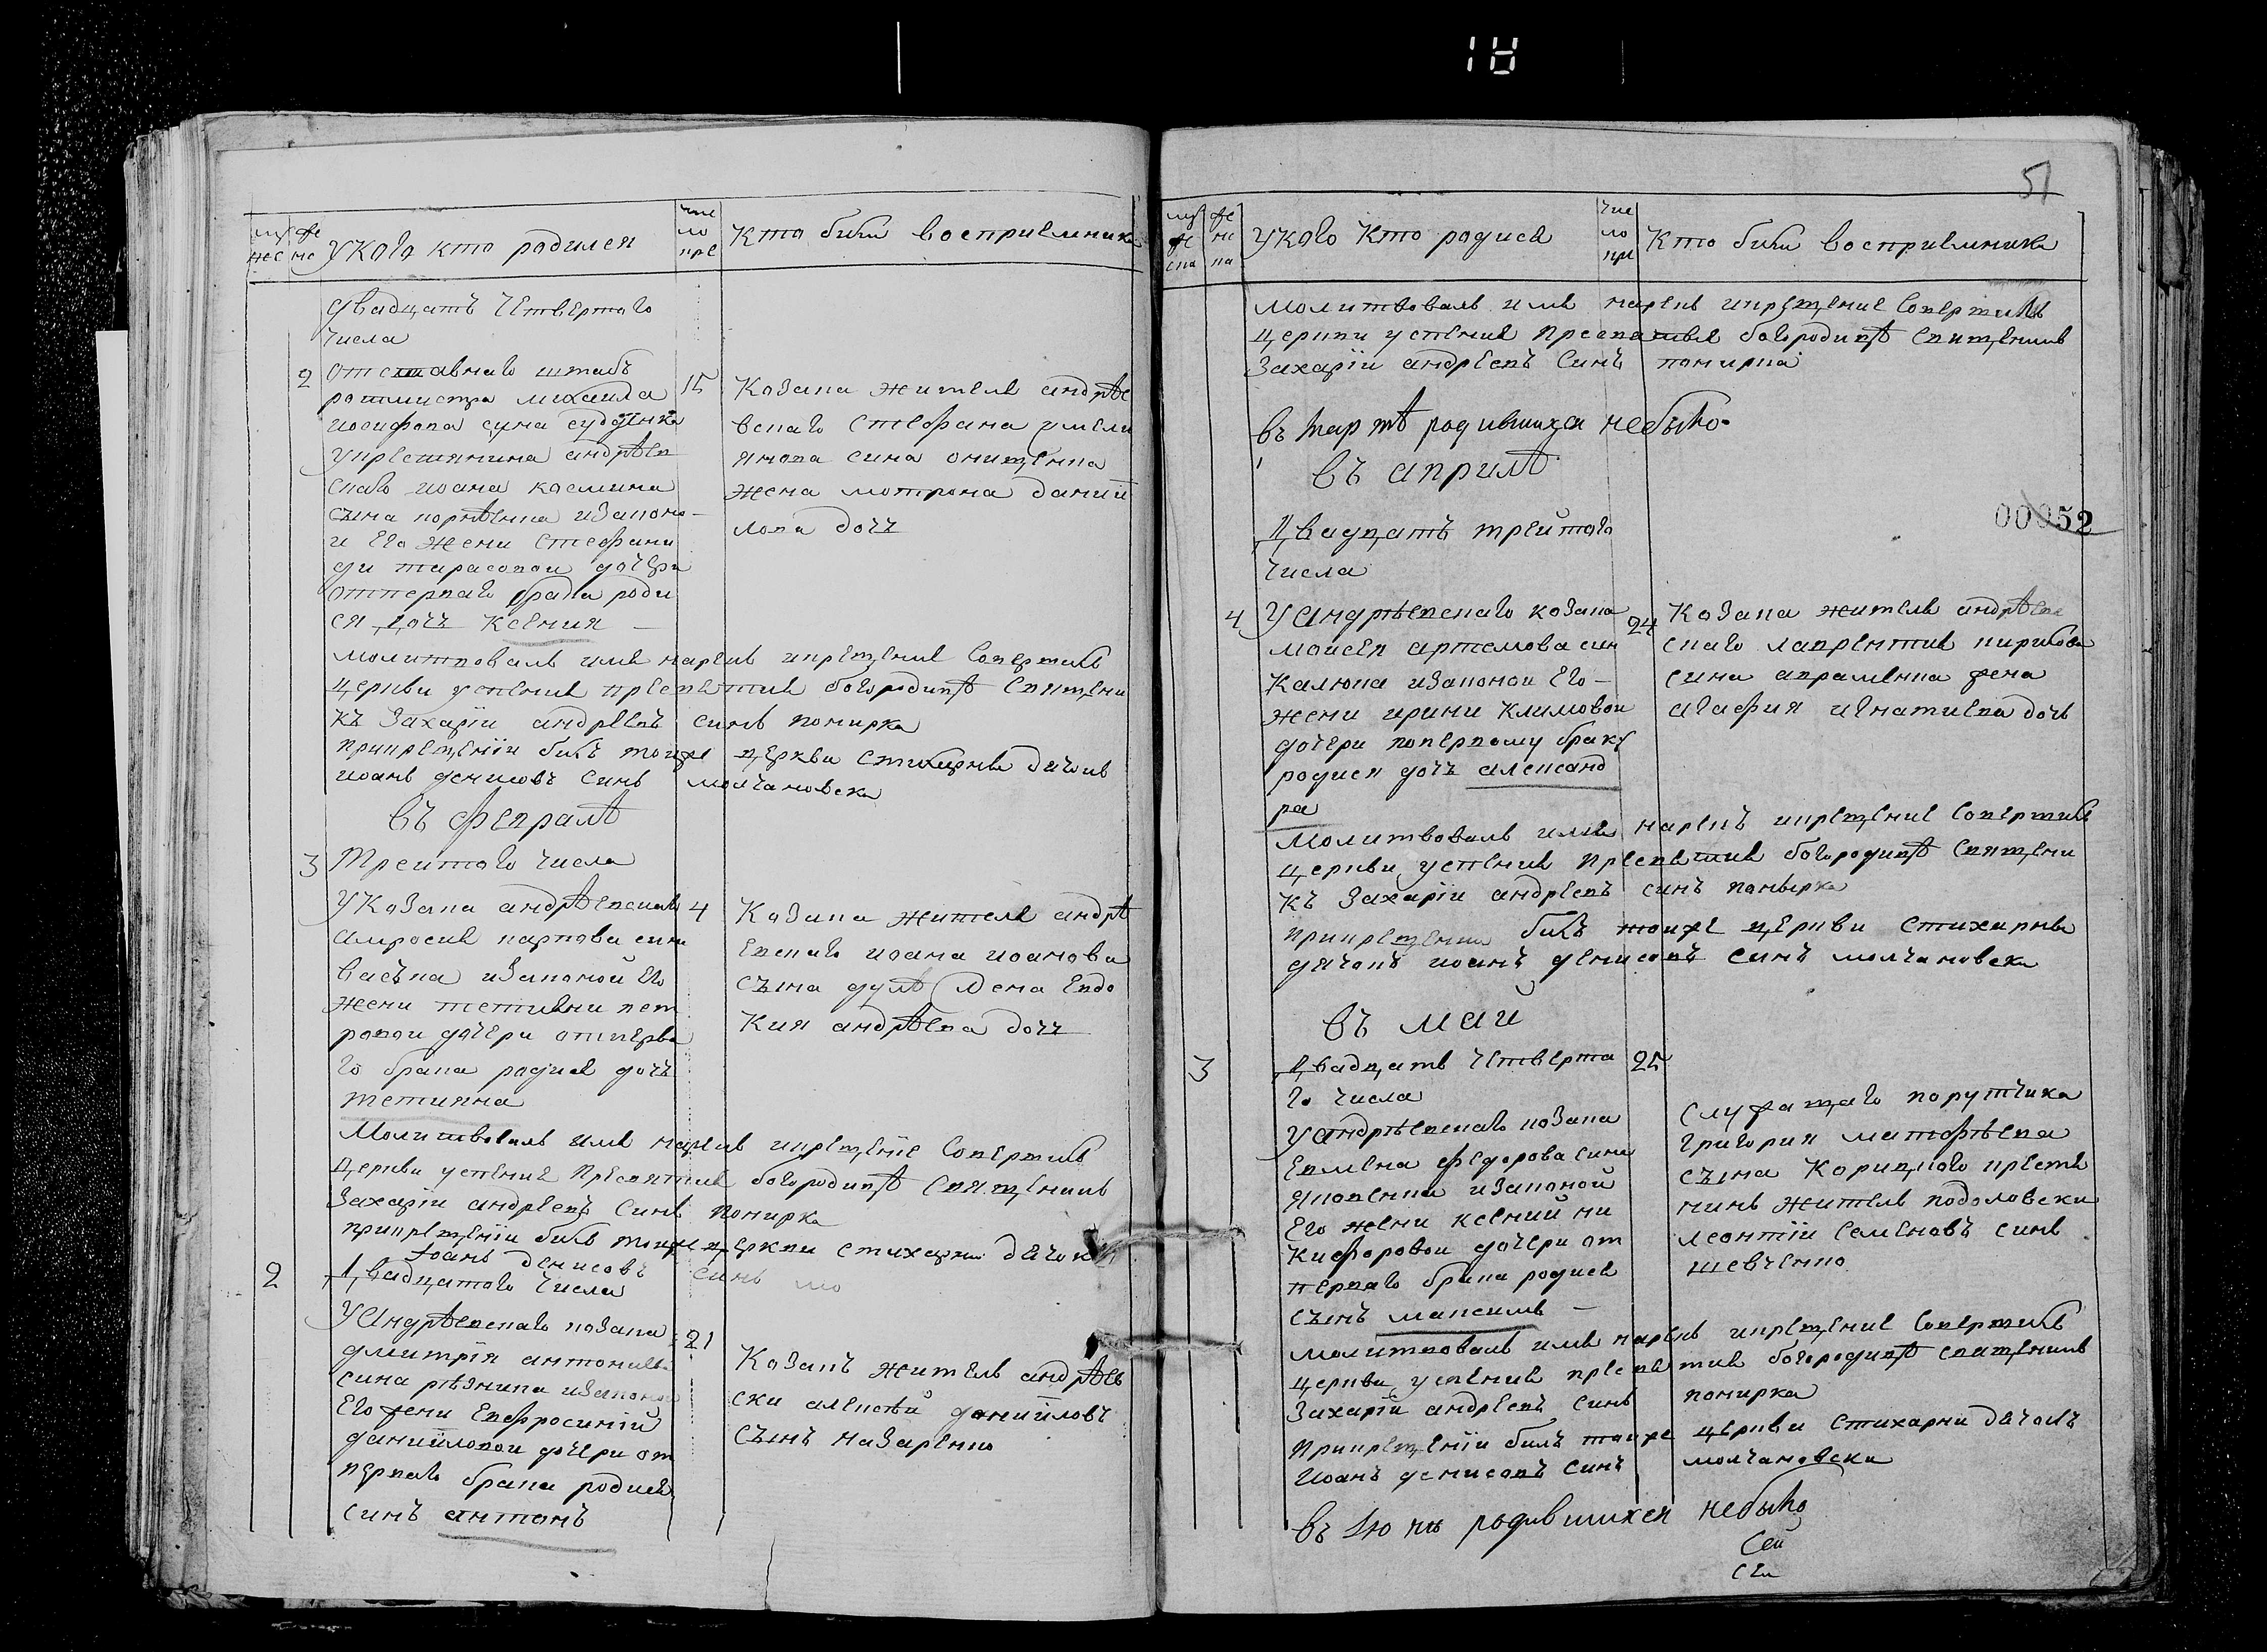 18
муж
жес
же
нс
Укого кто родился
чис
ло
кре
Кто били восприемники
двадцать четвертого
числа
2
отставнаго штабъ
ротмистра михаила
иосифова сина судденка
укрестянина андрѣев
скаго иоана космина
сына корнѣенка изакона
и его жени стефани
ди тарасовой дочери
отпервого брака роди
ся дочь Ксения
15
Козака жителя андрѣе
вскаго стефана
янова сина онищенка
жена мотрона даниї
лова дочь
молитвовалъ имя нарекъ икрещение совершилъ
церкви успения пресвятия богородицѣ священи
къ Захарїи андреевъ синъ понирка
прикрещенїи билъ тоейже церкви стихарни дячокъ
иоанъ денисовъ синъ молчановски
въ февралѣ
3
Трейтого числа
Укозака андрѣевскаго
амросия карпова сина
васъка изаконой его
жени тетияни пет
ровой дочери отперва
го брака родися дочь
тетияна
4
Козака жителя андрѣ
евскаго иоана иоанова
сына дулѣ жена евдо
кия андрѣева дочь
Молитвовалъ имя нарекъ икрещенїе совершилъ
церкви успения Пресвятия богородицѣ священикъ
Захарїи андреевъ синъ понирка
прикрещенїи билъ тоейже церкви стихарни дячокъ
иоанъ денисовъ синъ мо
2
двадцатого числа
Уандрѣевскаго козака
дмитрїя антониева
сина рѣзника изаконой
его жени евфросинїй
данииловой дочери от
перваго брака родися
синъ антонъ
21
Козакъ житель андрѣев
ски алексѣй данииловъ
сынъ назаренко
51
му
же
ска
же
нс
ка
укого Кто родися
чис
ло
кре
Кто били восприемники
молитвовалъ имя нарекъ икрещение совершилъ
церкви успения пресвятия богородицѣ священикъ
Захарїи андреевъ синъ понирка
въ мартѣ родившихся небыло
въ априлѣ
00052
двадцать трейтого
числа
4
Уандрѣевскаго козака
моисея артемова син
Калюка изаконой его
жени ирини климовой
дочери поперво му браку
родися дочь александ
ра
24
Козака жителя андрѣев
скаго лаврентия кирилова
сина авраменка жена
агафия игнатиева дочь
молитвовалъ имя нарекъ икрещение совершилъ
церкви успения пресвятия богородицѣ священи
къ Захарїи андреевъ синъ понырка
прикрещении билъ тоейже церкви стихарни
дячокъ иоанъ денисовъ синъ молчановски
въ май
3
двадцать четверта
го числа
25
уандрѣевскаго козака
евмена федорова сина
яковенка изаконой
его жени ксений ни
кифоровой дочери от
перваго брака родися
сынъ максимъ
служащаго порутчика
григория матфѣева
сына Корицкого крестя
нинъ житель подоловски
леонтїи семеновъ синъ
шевченко
молитвовалъ имя нарекъ икрещение совершилъ
церкви успения пресвятия богородицѣ священикъ
Захарїи андреевъ синъ понирка
прикрещенїи билъ тоейже церкви стихарни дячокъ
иоанъ денисовъ синъ молчановски
въ Июнѣ родившихся небыло